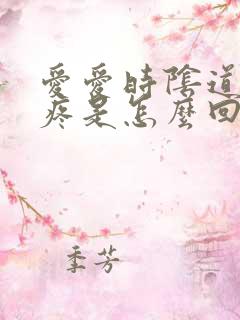 愛愛時陰道
疼是怎麼回
季芳